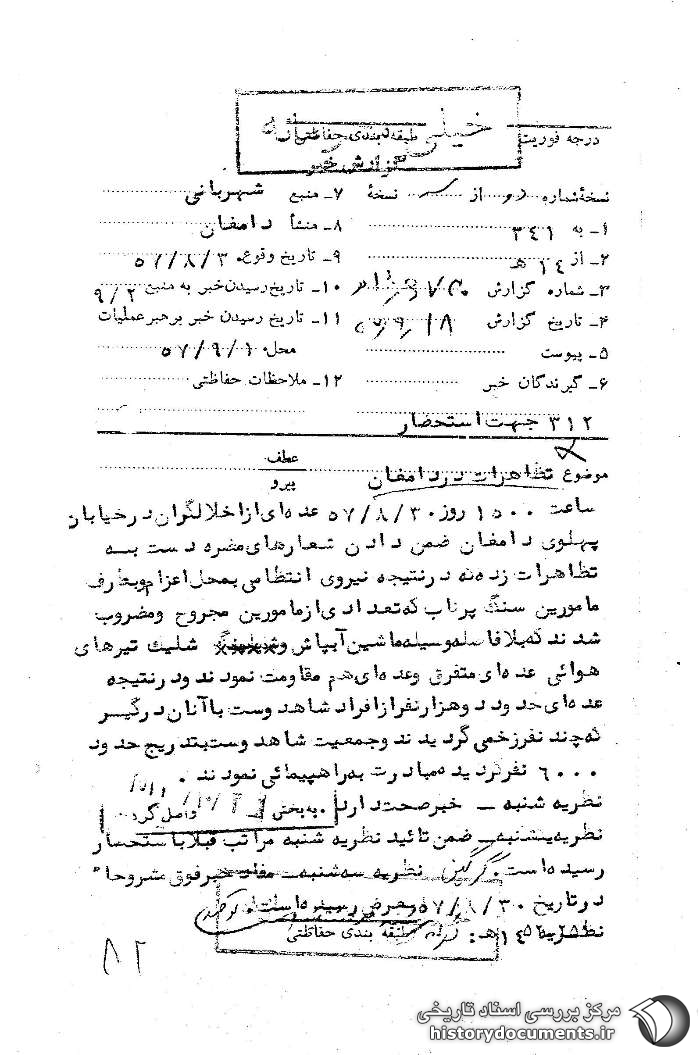 خیلی
درجه فوریت
طبقه بندی حفاظتی
گزارش خبر
نسخه شماره دو از سه نسخه
۷ـ منبع شهربانی
۱ـ به ۳٤۱
۸ـ منشأ دامغان
۲ـ از ۱٤ هـ
۹ـ تاریخ وقوع ۵۷/۸/۳۰
۳ـ شماره گزارش
۱۰ـ تاریخ رسیدن خبر به منبع
۴ـ تاریخ گزارش
۱۱ـ تاریخ رسیدن خبر برهبر عملیات
۵ـ پیوست
محل ۵۷/۹/۱
۶ـ گیرندگان خبر
۱۲ـ ملاحظات حفاظتی
۳۱۲ جهت استحضار
موضوع تظاهرات در دامغان
عطف
پیرو
ساعت ۱۵۰۰ روز ۵۷/۸/۳۰ عده‌ای از اخلالگران در خیابان
پهلوی دامغان ضمن دادن شعارهای مضره دست به
تظاهرات زده‌که درنتیجه نیروی انتظامی بمحل اعزام وبطرف
مامورین سنگ پرتاب که تعدادی از مامورین مجروح ومضروب
شدند که بلافاصله وسیله ماشین آبپاش و شلیک تیرهای
هوائی عده‌ای متفرق وعده‌ای هم مقاومت نمودند ودرنتیجه
عده‌ای حدود دوهزار نفر از افراد شاهدوست با آنان درگیر
که چند نفر زخمی گردیدند وجمعیت شاهدوست بتدریج حدود
۶۰۰۰ نفر گردیده مبادرت به راهپیمائی نمودند .
نظریه شنبه ـ خبر صحت دارد . به بخش واصل گردید
نظریه یکشنبه ـ ضمن تائید نظریه شنبه مراتب قبلا باستحضار
رسیده است . نظریه سه شنبه ـ مفاد خبر فوق مشروحا"
در تاریخ ۵۷/۸/۳۰ بعرض رسیده است .
نظریه ۱٤ هـ :
طبقه بندی حفاظتی
۸۲
مرکز بررسی اسناد تاریخی
historydocuments.ir